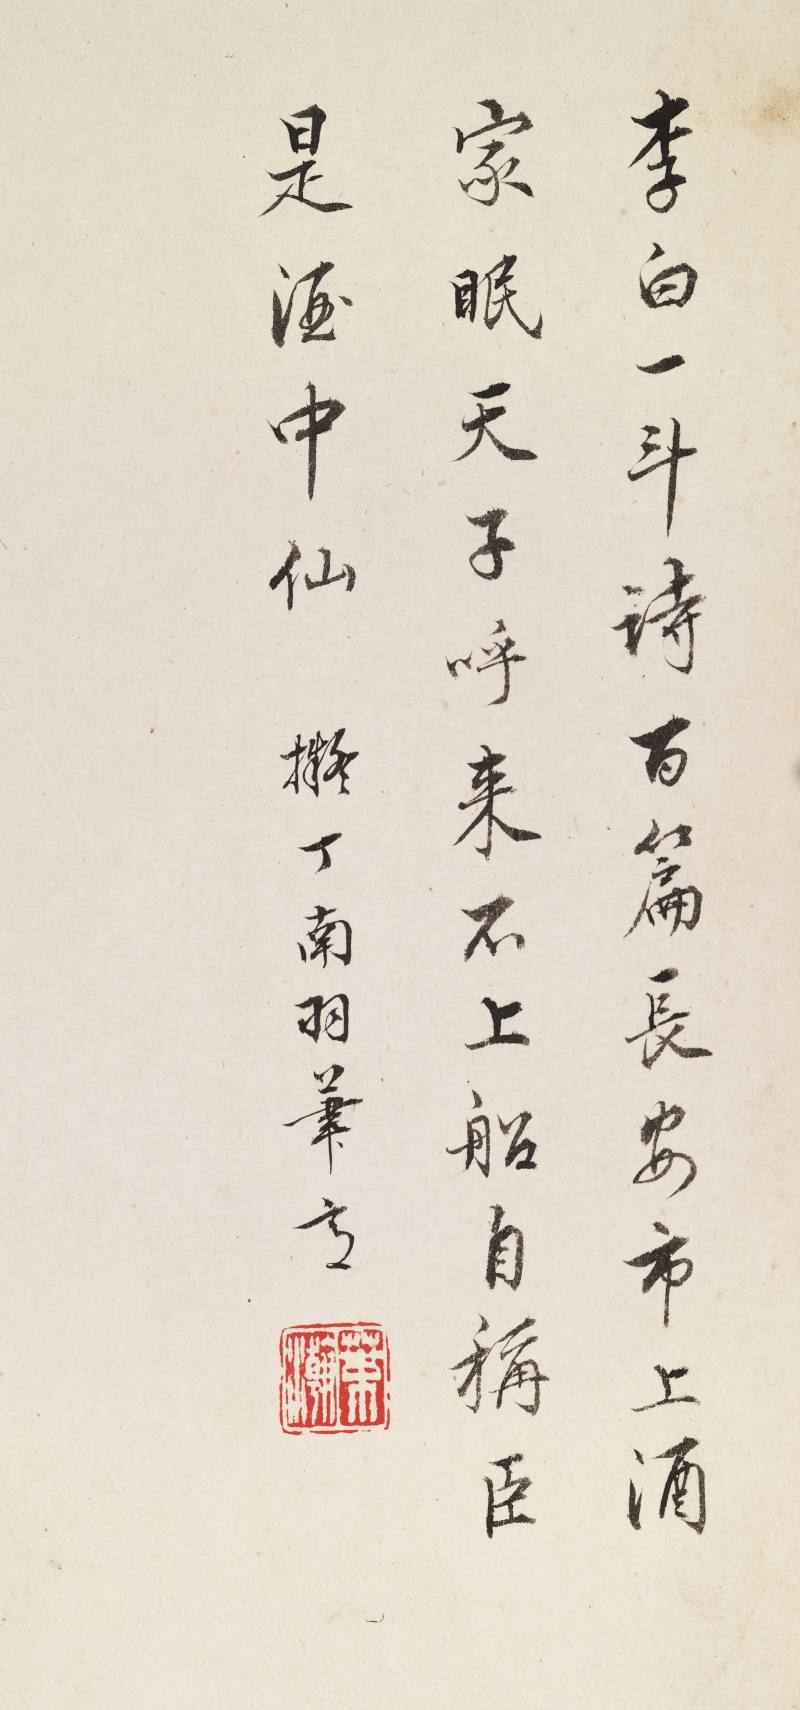 李白一斗詩百篇長安市上酒
家眠天子呼来不上船自稱臣
是酒中仙 擬丁南羽筆意